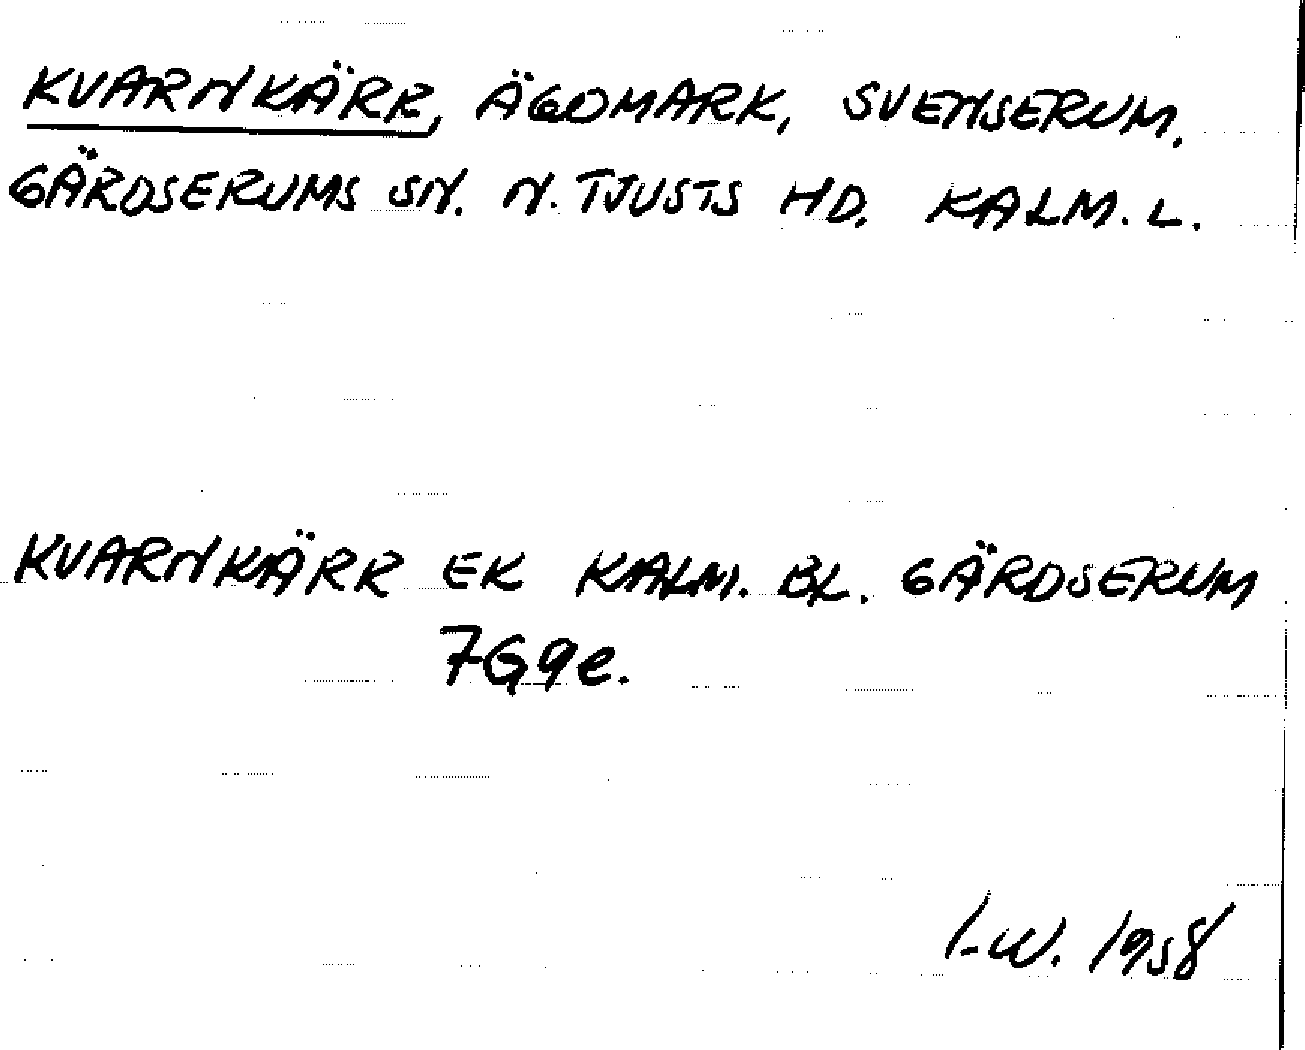 KVARNKÄRR, ÄGOMARK, SVENSERUM.
GÄRDSERUMS SN. N. TJUSTS HD. KALM. L.
KVARNKÄRR EK KALM. BL. GÄRDSERUM
7G9e.
I.W. 1958